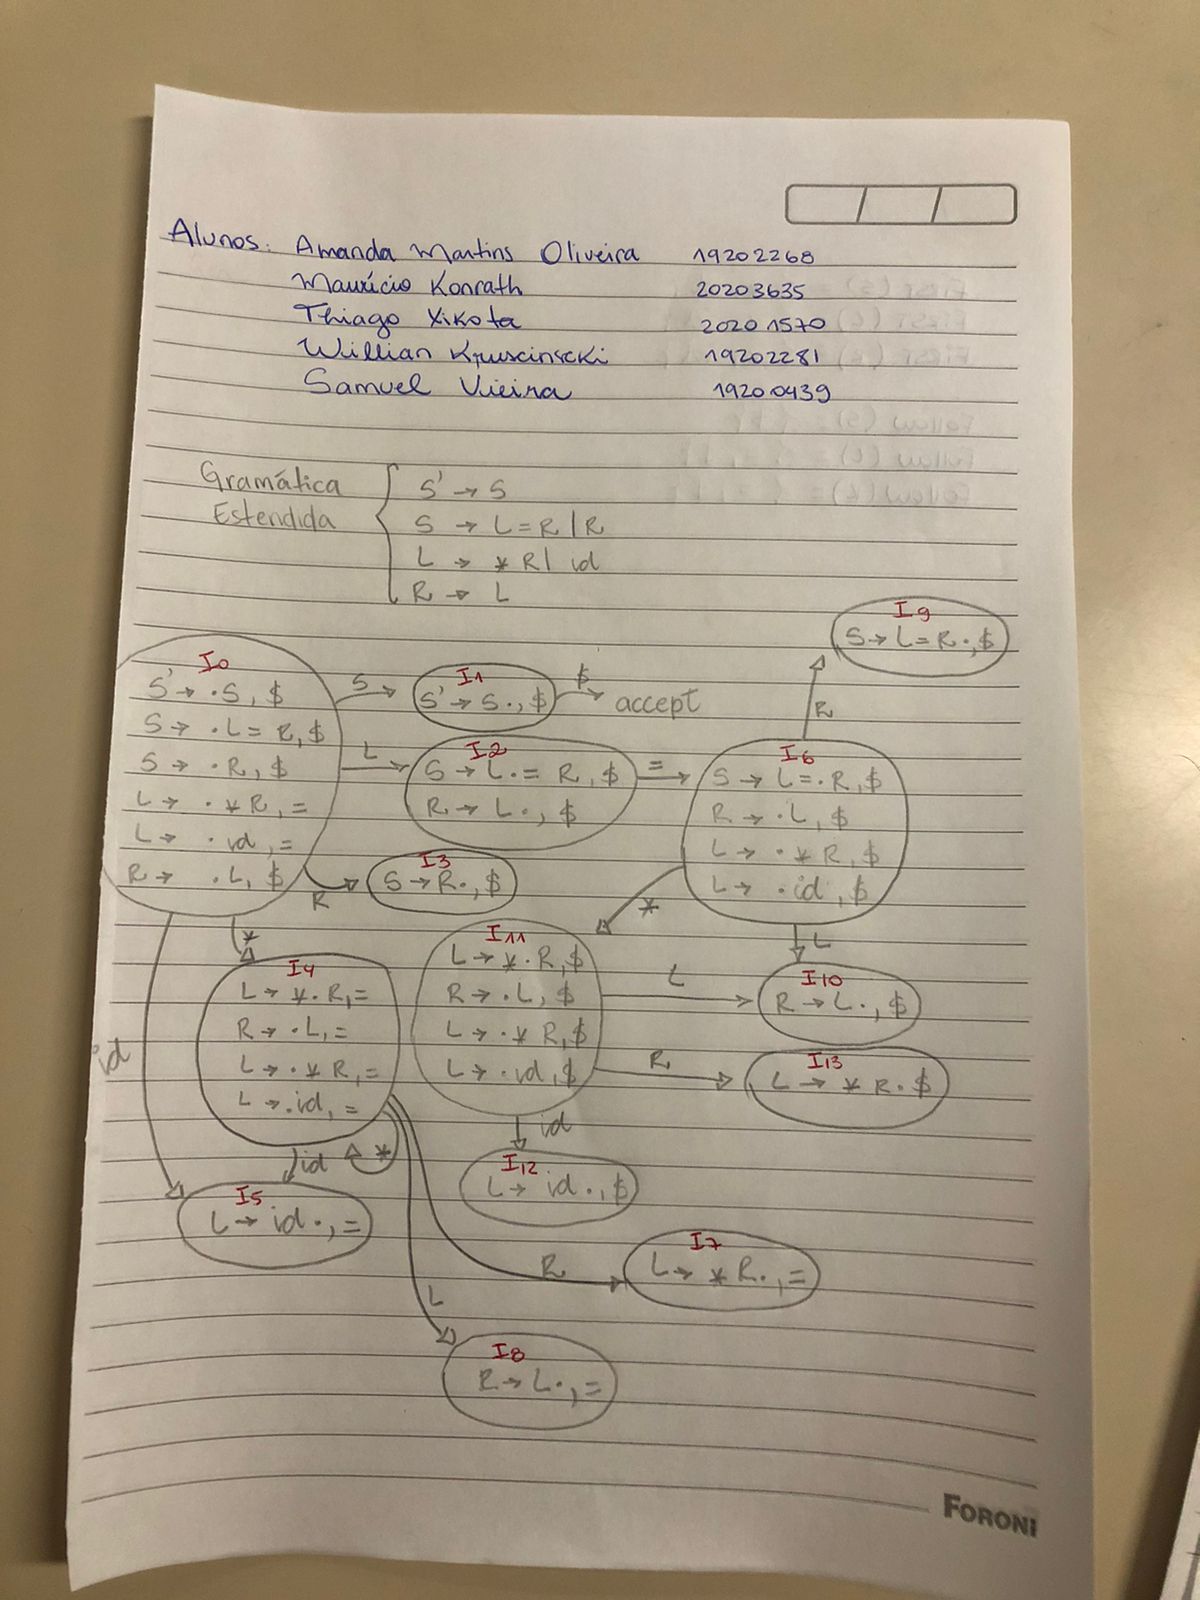 Alunos: Amanda Martins Oliveira 19202268
Maurício Konrath 20203635
Thiago Xikota 20201570
Willian Kruscinscki 19202281
Samuel Vieira 19200439
Gramática Estendida
S' → S
S → L = R | R
L → * R | id
R → L
I9
S → L = R ·, $
I0
S' → · S, $
S → · L = R, $
S → · R, $
L → · * R, =
L → · id, =
R → · L, $
S
I1
S' → S ·, $
$
accept
L
I2
S → L · = R, $
R → L ·, $
=
I6
S → L = · R, $
R → · L, $
L → · * R, $
L → · id, $
R
R
I3
S → R ·, $
*
*
L
id
I4
L → * · R, =
R → · L, =
L → · * R, =
L → · id, =
I11
L → * · R, $
R → · L, $
L → · * R, $
L → · id, $
L
I10
R → L ·, $
R
I13
L → * R · $
id
*
id
I12
L → id ·, $
I5
L → id ·, =
R
I7
L → * R ·, =
L
I8
R → L ·, =
FORONI